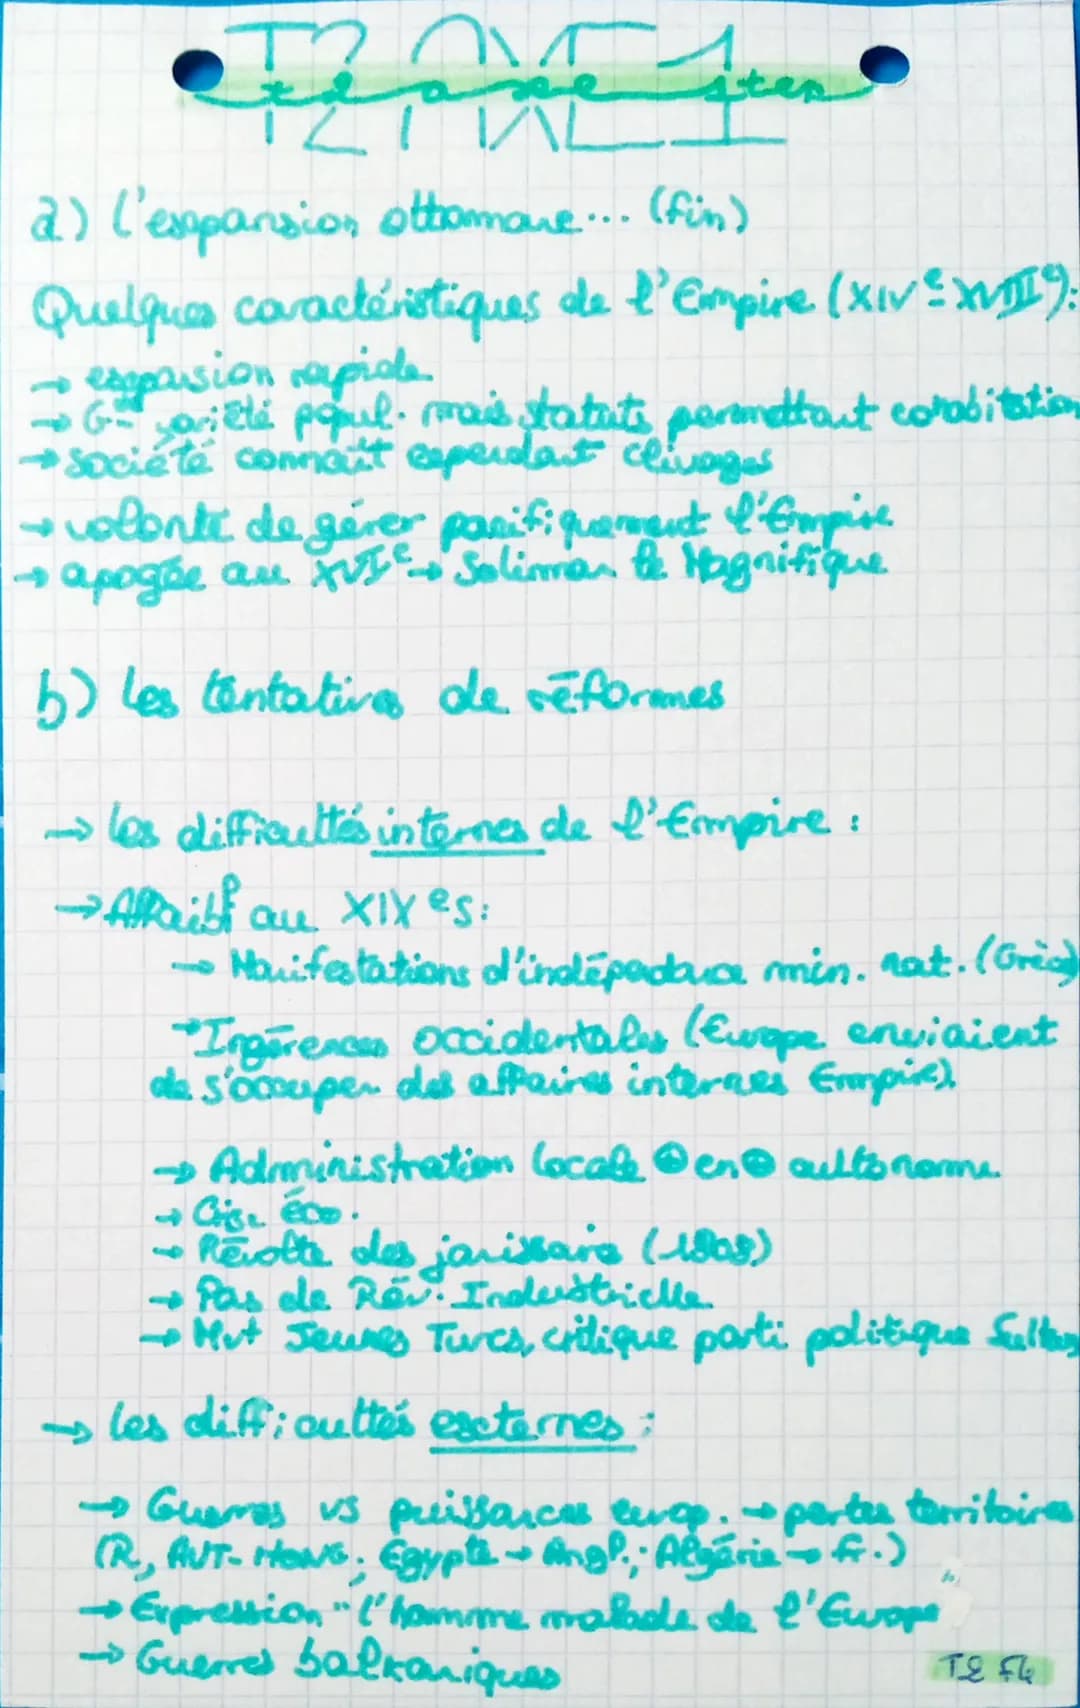 T2 AXE 1
t2 axe 1 ter
a) l'expansion ottomane... (fin)
Quelques caractéristiques de l'Empire (XIVe-XVIIIe):
→ expansion rapide
→ Gde variété popul. mais statuts permettant cohabitation
→ société connaît cependant clivages
→ volonté de gérer pacifiquement l'Empire
→ apogée au XVIe → Soliman le Magnifique
b) les tentatives de réformes
→ les difficultés internes de l'Empire :
→ Affaibt au XIXe s:
→ Manifestations d'indépendance min. nat. (Grèce)
→ Ingérences occidentales (Europe enviaient
de s'occuper des affaires internes Empire).
→ Administration locale ⊕ en ⊕ autonome
→ Crise éco.
→ Révolte des janissaire (1808)
→ Pas de Rév. Industrielle
→ Mvt Jeunes Turcs, critique parti politique Sultan
→ les difficultés externes :
→ Guerres vs puissances europ. → pertes territoires
(R, AUT-HONG; Egypte → Angl.; Algérie → fr.)
→ Expression "l'homme malade de l'Europe
→ Guerres balkaniques
T2 F4